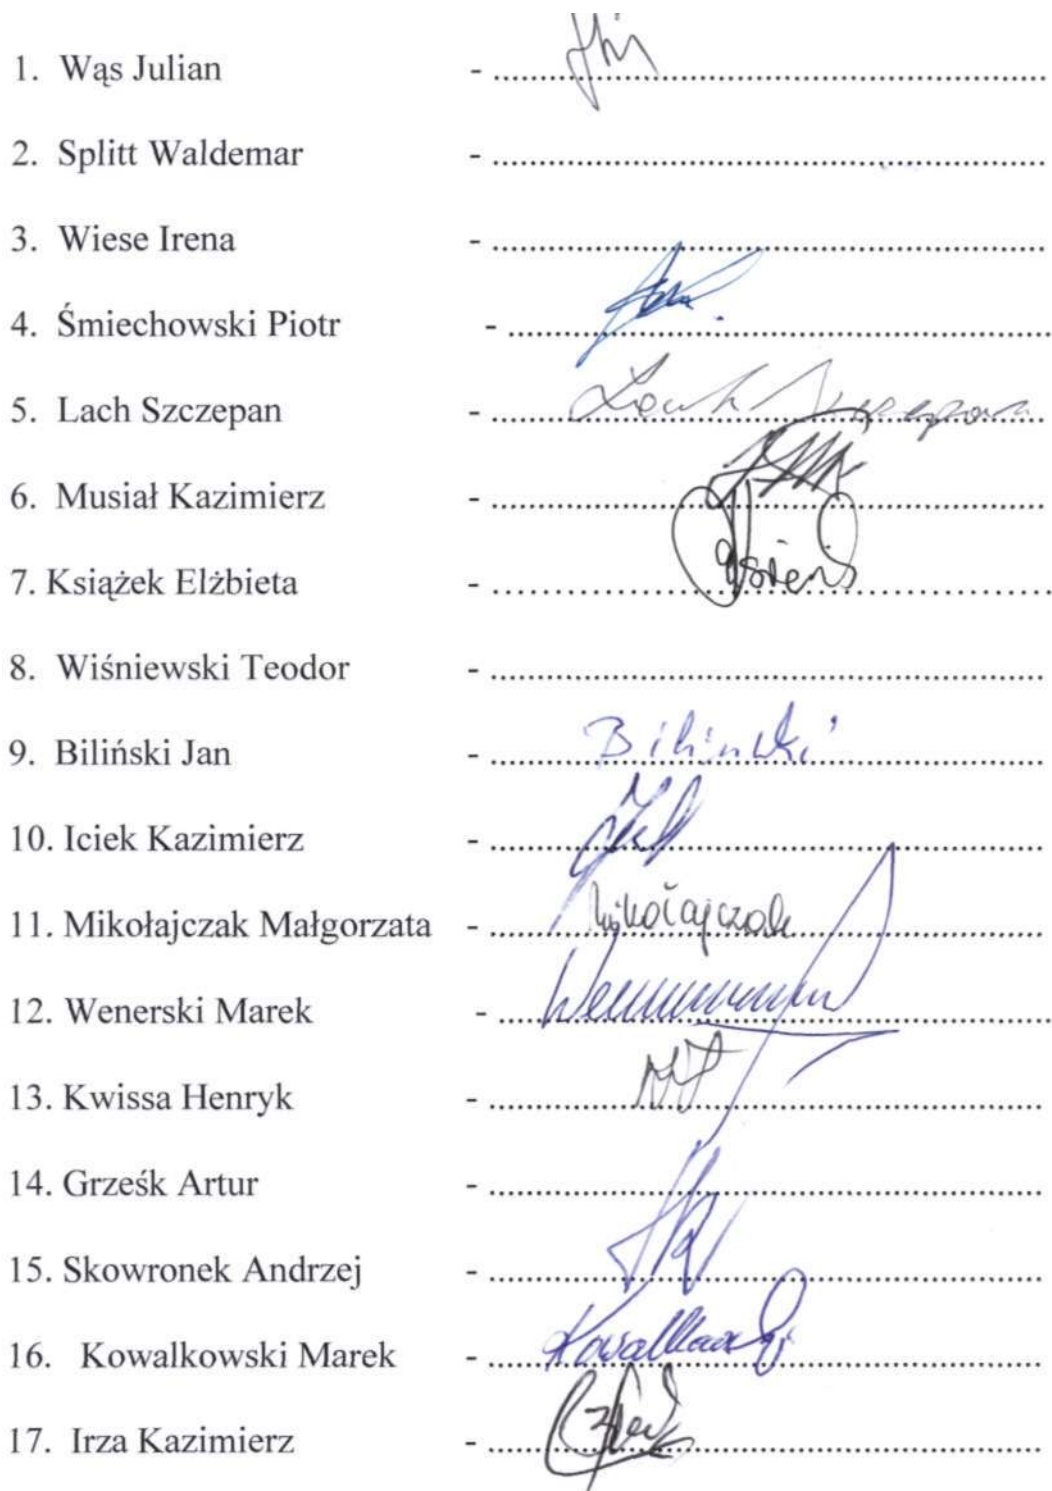 1. Wąs Julian - ..........
2. Splitt Waldemar - ..........
3. Wiese Irena - ..........
4. Śmiechowski Piotr - ..........
5. Lach Szczepan - .......... Lach Szczepan
6. Musiał Kazimierz - ..........
7. Książek Elżbieta - ..........
8. Wiśniewski Teodor - ..........
9. Biliński Jan - .......... Biliński
10. Iciek Kazimierz - ..........
11. Mikołajczak Małgorzata - .......... Mikołajczak
12. Wenerski Marek - ..........
13. Kwissa Henryk - ..........
14. Grześk Artur - ..........
15. Skowronek Andrzej - ..........
16. Kowalkowski Marek - .......... Kowalkowski
17. Irza Kazimierz - ..........